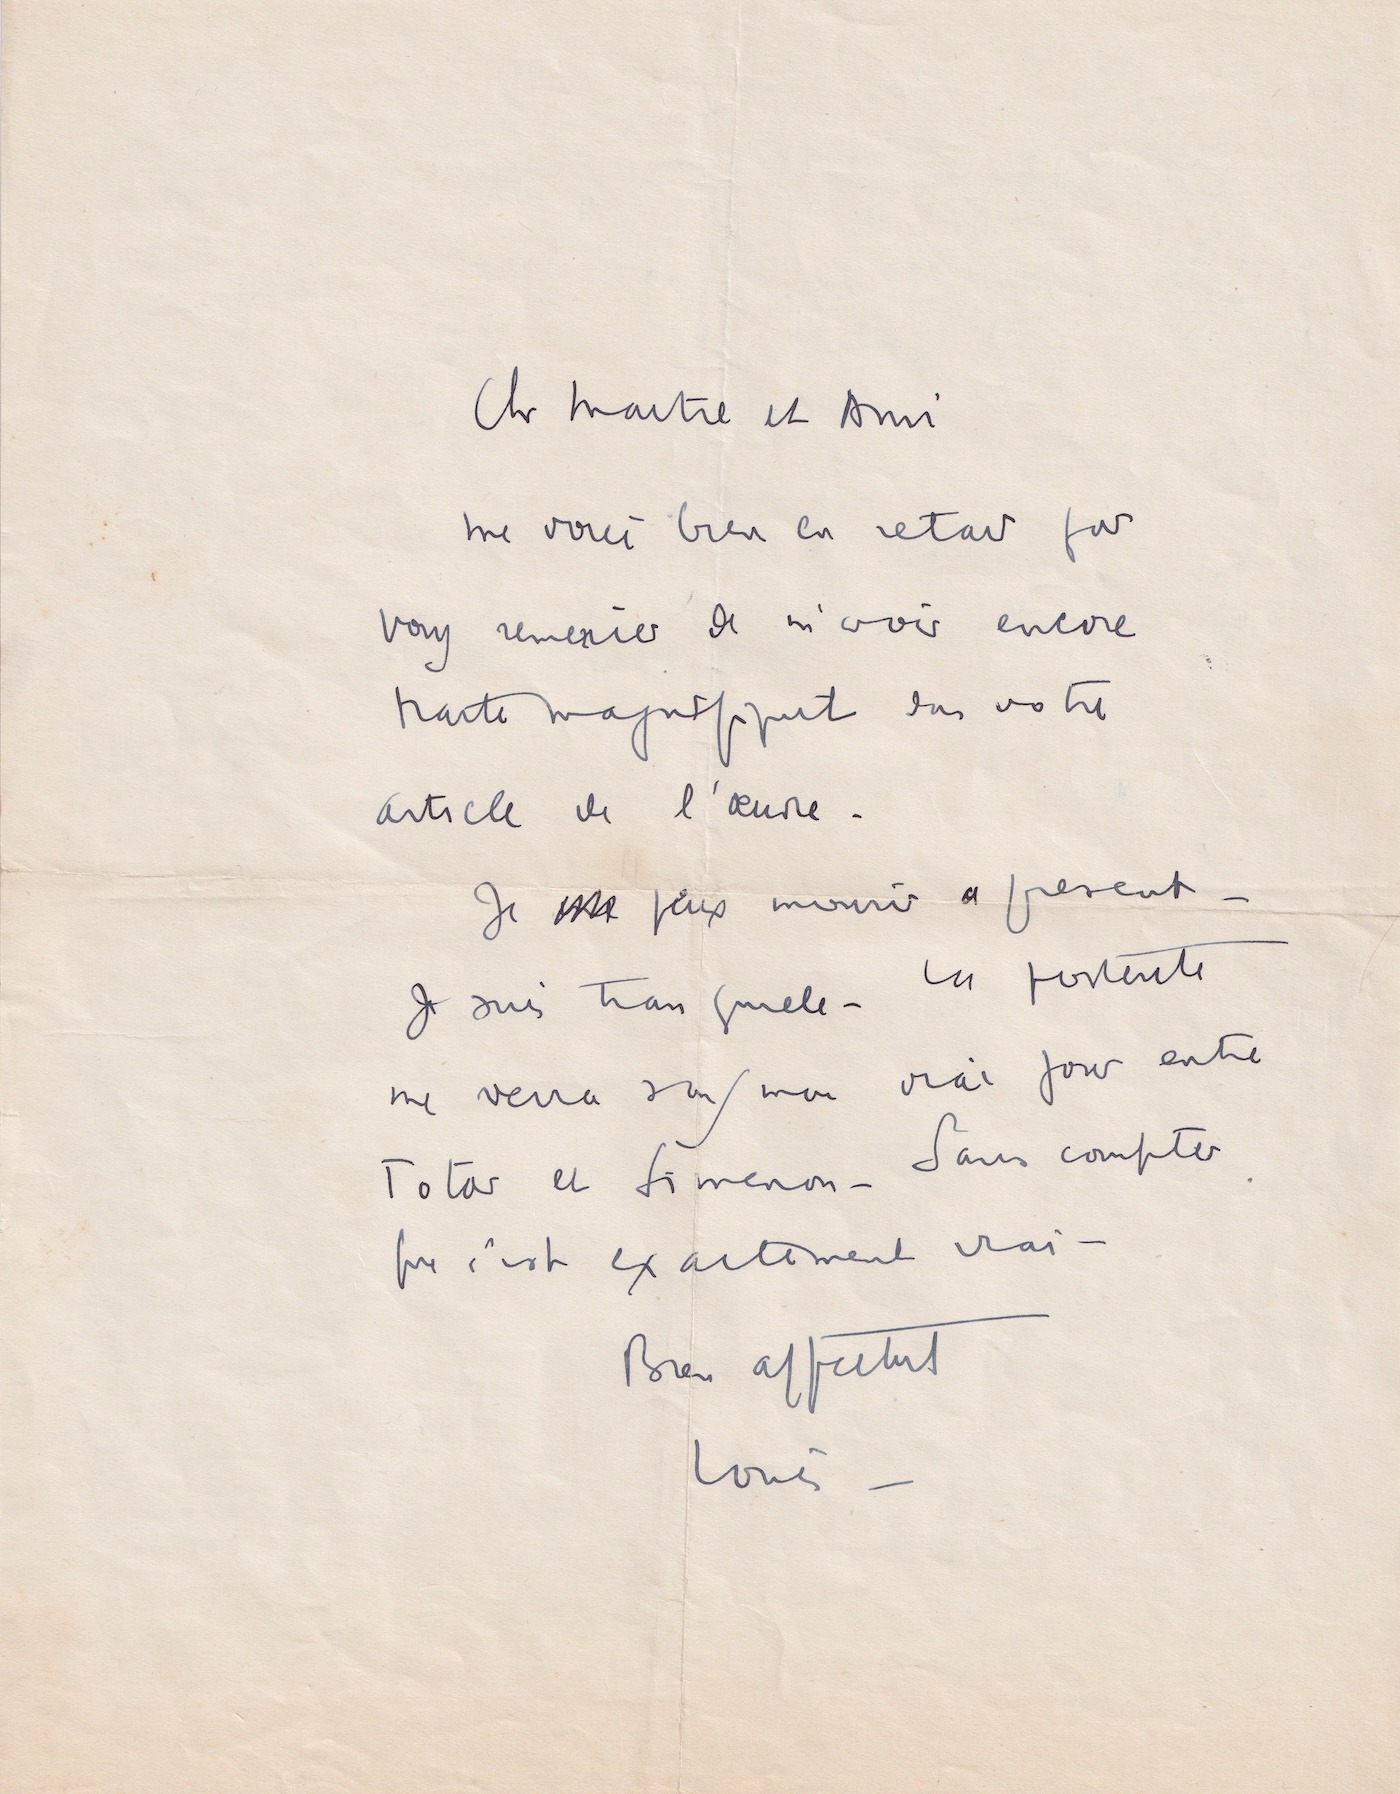 Cher Maitre et Ami
me voici bien en retard pour
vous remercier de m'avoir encore
traité magnifiqut dans votre
article de l'œuvre -
Je peux mourir a present -
Je suis tranquile - La posterite
me verra sous mon vrai jour entre
Totor et Simenon - Sans compter
que c'est exactement vrai -
Bien affectust
Louis -